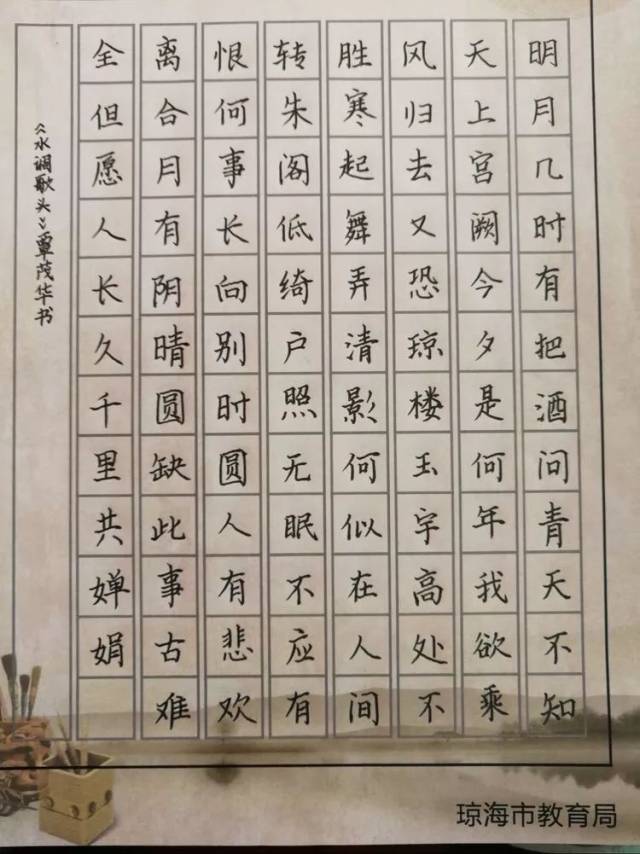 明月几时有把酒问青天不知
天上宫阙今夕是何年我欲乘
风归去又恐琼楼玉宇高处不
胜寒起舞弄清影何似在人间
转朱阁低绮户照无眠不应有
恨何事长向别时圆人有悲欢
离合月有阴晴圆缺此事古难
全但愿人长久千里共婵娟
《水调歌头》覃茂华书
琼海市教育局